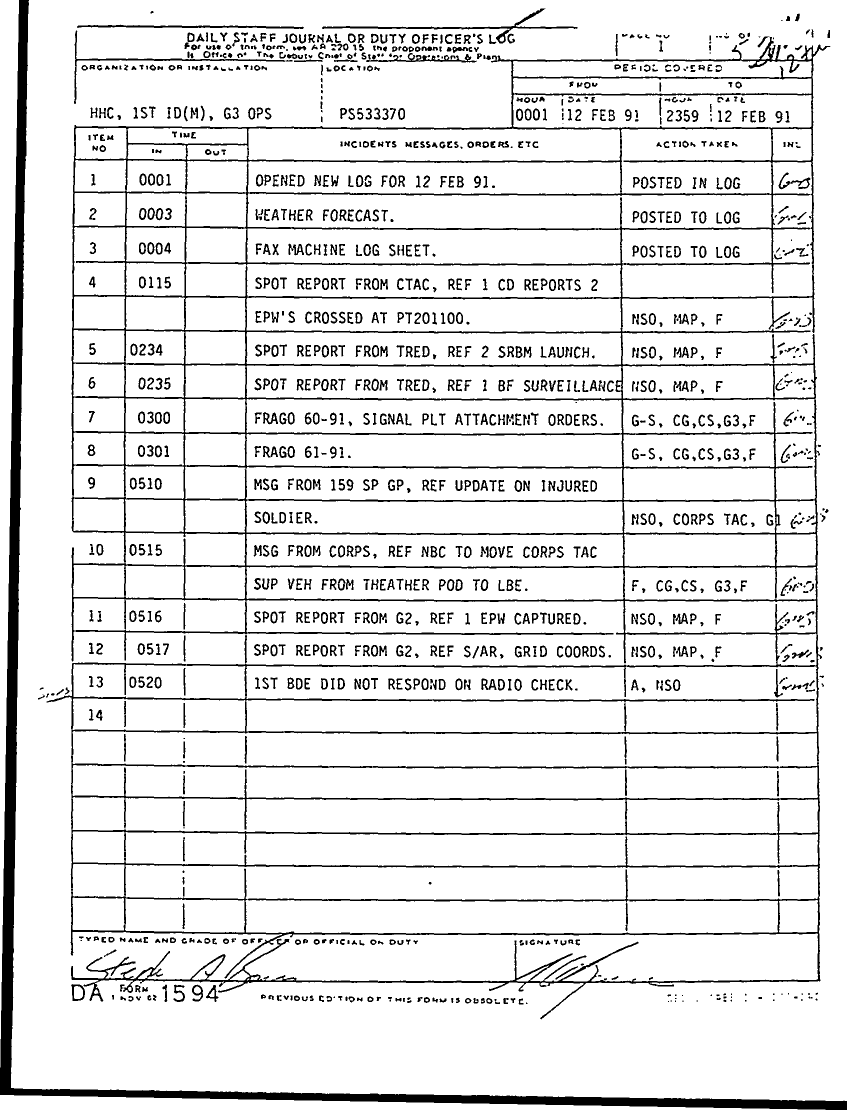 DAILY STAFF JOURNAL OR DUTY OFFICER'S LOG
For use of this form, see AR 220-15 the proponent agency
is Office of The Deputy Chief of Staff for Operations & Plans
PAGE NO
1
NO OF
5
ORGANIZATION OR INSTALLATION
LOCATION
PERIOD COVERED
FROM
TO
HOUR DATE HOUR DATE
HHC, 1ST ID(M), G3 OPS PS533370 0001 12 FEB 91 2359 12 FEB 91
ITEM NO
TIME
IN OUT
INCIDENTS MESSAGES, ORDERS, ETC
ACTION TAKEN
INL
1 0001 OPENED NEW LOG FOR 12 FEB 91. POSTED IN LOG
2 0003 WEATHER FORECAST. POSTED TO LOG
3 0004 FAX MACHINE LOG SHEET. POSTED TO LOG
4 0115 SPOT REPORT FROM CTAC, REF 1 CD REPORTS 2
EPW'S CROSSED AT PT201100. NSO, MAP, F
5 0234 SPOT REPORT FROM TRED, REF 2 SRBM LAUNCH. NSO, MAP, F
6 0235 SPOT REPORT FROM TRED, REF 1 BF SURVEILLANCE NSO, MAP, F
7 0300 FRAGO 60-91, SIGNAL PLT ATTACHMENT ORDERS. G-S, CG,CS,G3,F
8 0301 FRAGO 61-91. G-S, CG,CS,G3,F
9 0510 MSG FROM 159 SP GP, REF UPDATE ON INJURED
SOLDIER. NSO, CORPS TAC, G1
10 0515 MSG FROM CORPS, REF NBC TO MOVE CORPS TAC
SUP VEH FROM THEATHER POD TO LBE. F, CG,CS, G3,F
11 0516 SPOT REPORT FROM G2, REF 1 EPW CAPTURED. NSO, MAP, F
12 0517 SPOT REPORT FROM G2, REF S/AR, GRID COORDS. NSO, MAP, F
13 0520 1ST BDE DID NOT RESPOND ON RADIO CHECK. A, NSO
14
TYPED NAME AND GRADE OF OFFICER OR OFFICIAL ON DUTY
SIGNATURE
DA FORM 1 NOV 62 1594
PREVIOUS EDITION OF THIS FORM IS OBSOLETE.